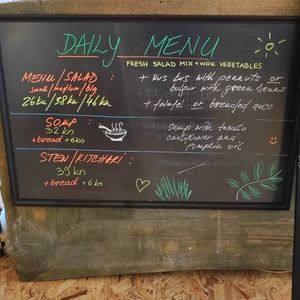 DAILY MENU
FRESH SALAD MIX + WOK VEGETABLES
MENU/SALAD :
small/medium/big
26kn/38kn/46kn
+ kus kus with peanuts or
bulgur with green beans
+ falafel or breaded
SOUP :
32 kn
+ bread +6kn
soup with tomato
cauliflower and
pumpkin oil
STEW/KITCHARI :
39 kn
+ bread +6 kn